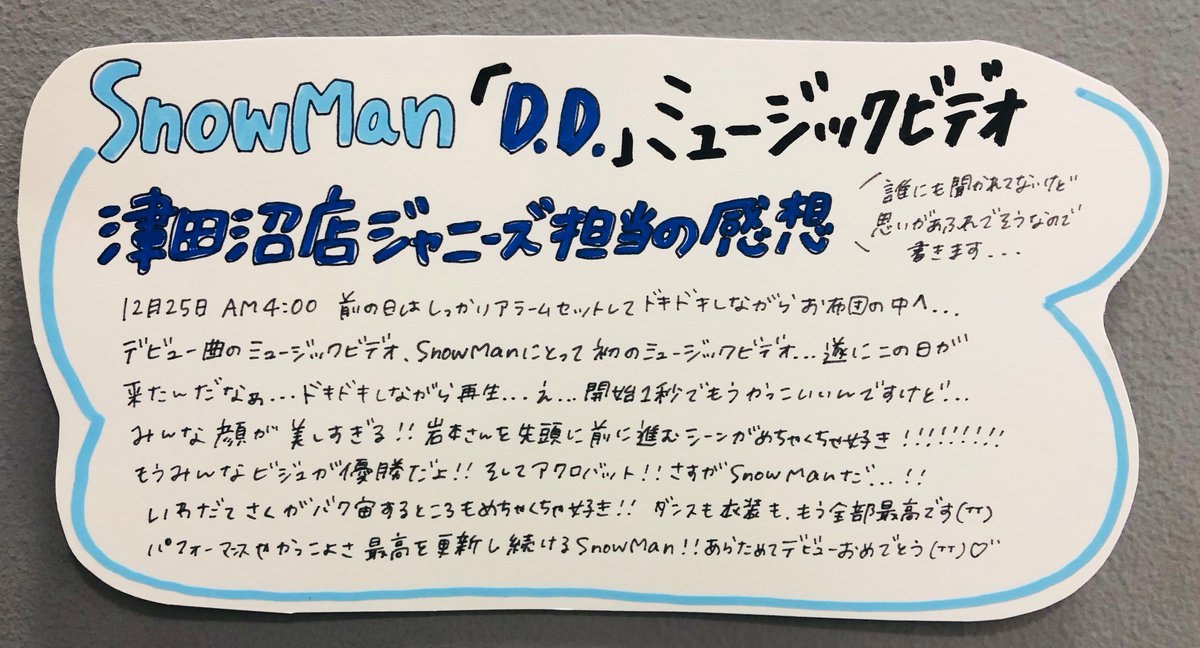 SnowMan「D.D.」ミュージックビデオ
津田沼店ジャニーズ担当の感想
誰にも聞かれてないけど
思いがあふれでそうなので
書きます...
12月25日 AM4:00 前の日はしっかりアラームセットしてドキドキしながらお布団の中へ...
デビュー曲のミュージックビデオ、SnowManにとって初のミュージックビデオ...遂にこの日が
来たんだなぁ...ドキドキしながら再生...え...開始1秒でもうかっこいいんですけど...
みんな顔が美しすぎる!!岩本さんを先頭に前に進むシーンがめちゃくちゃ好き!!!!!!!!!
もうみんなビジュが優勝だよ!!そしてアクロバット!!さすがSnowManだ...!!
いわだてさくがバク宙するところもめちゃくちゃ好き!!ダンスも衣装も、もう全部最高です(TT)
パフォーマンスやかっこよさ最高を更新し続けるSnowMan!!あらためてデビューおめでとう(TT)♡